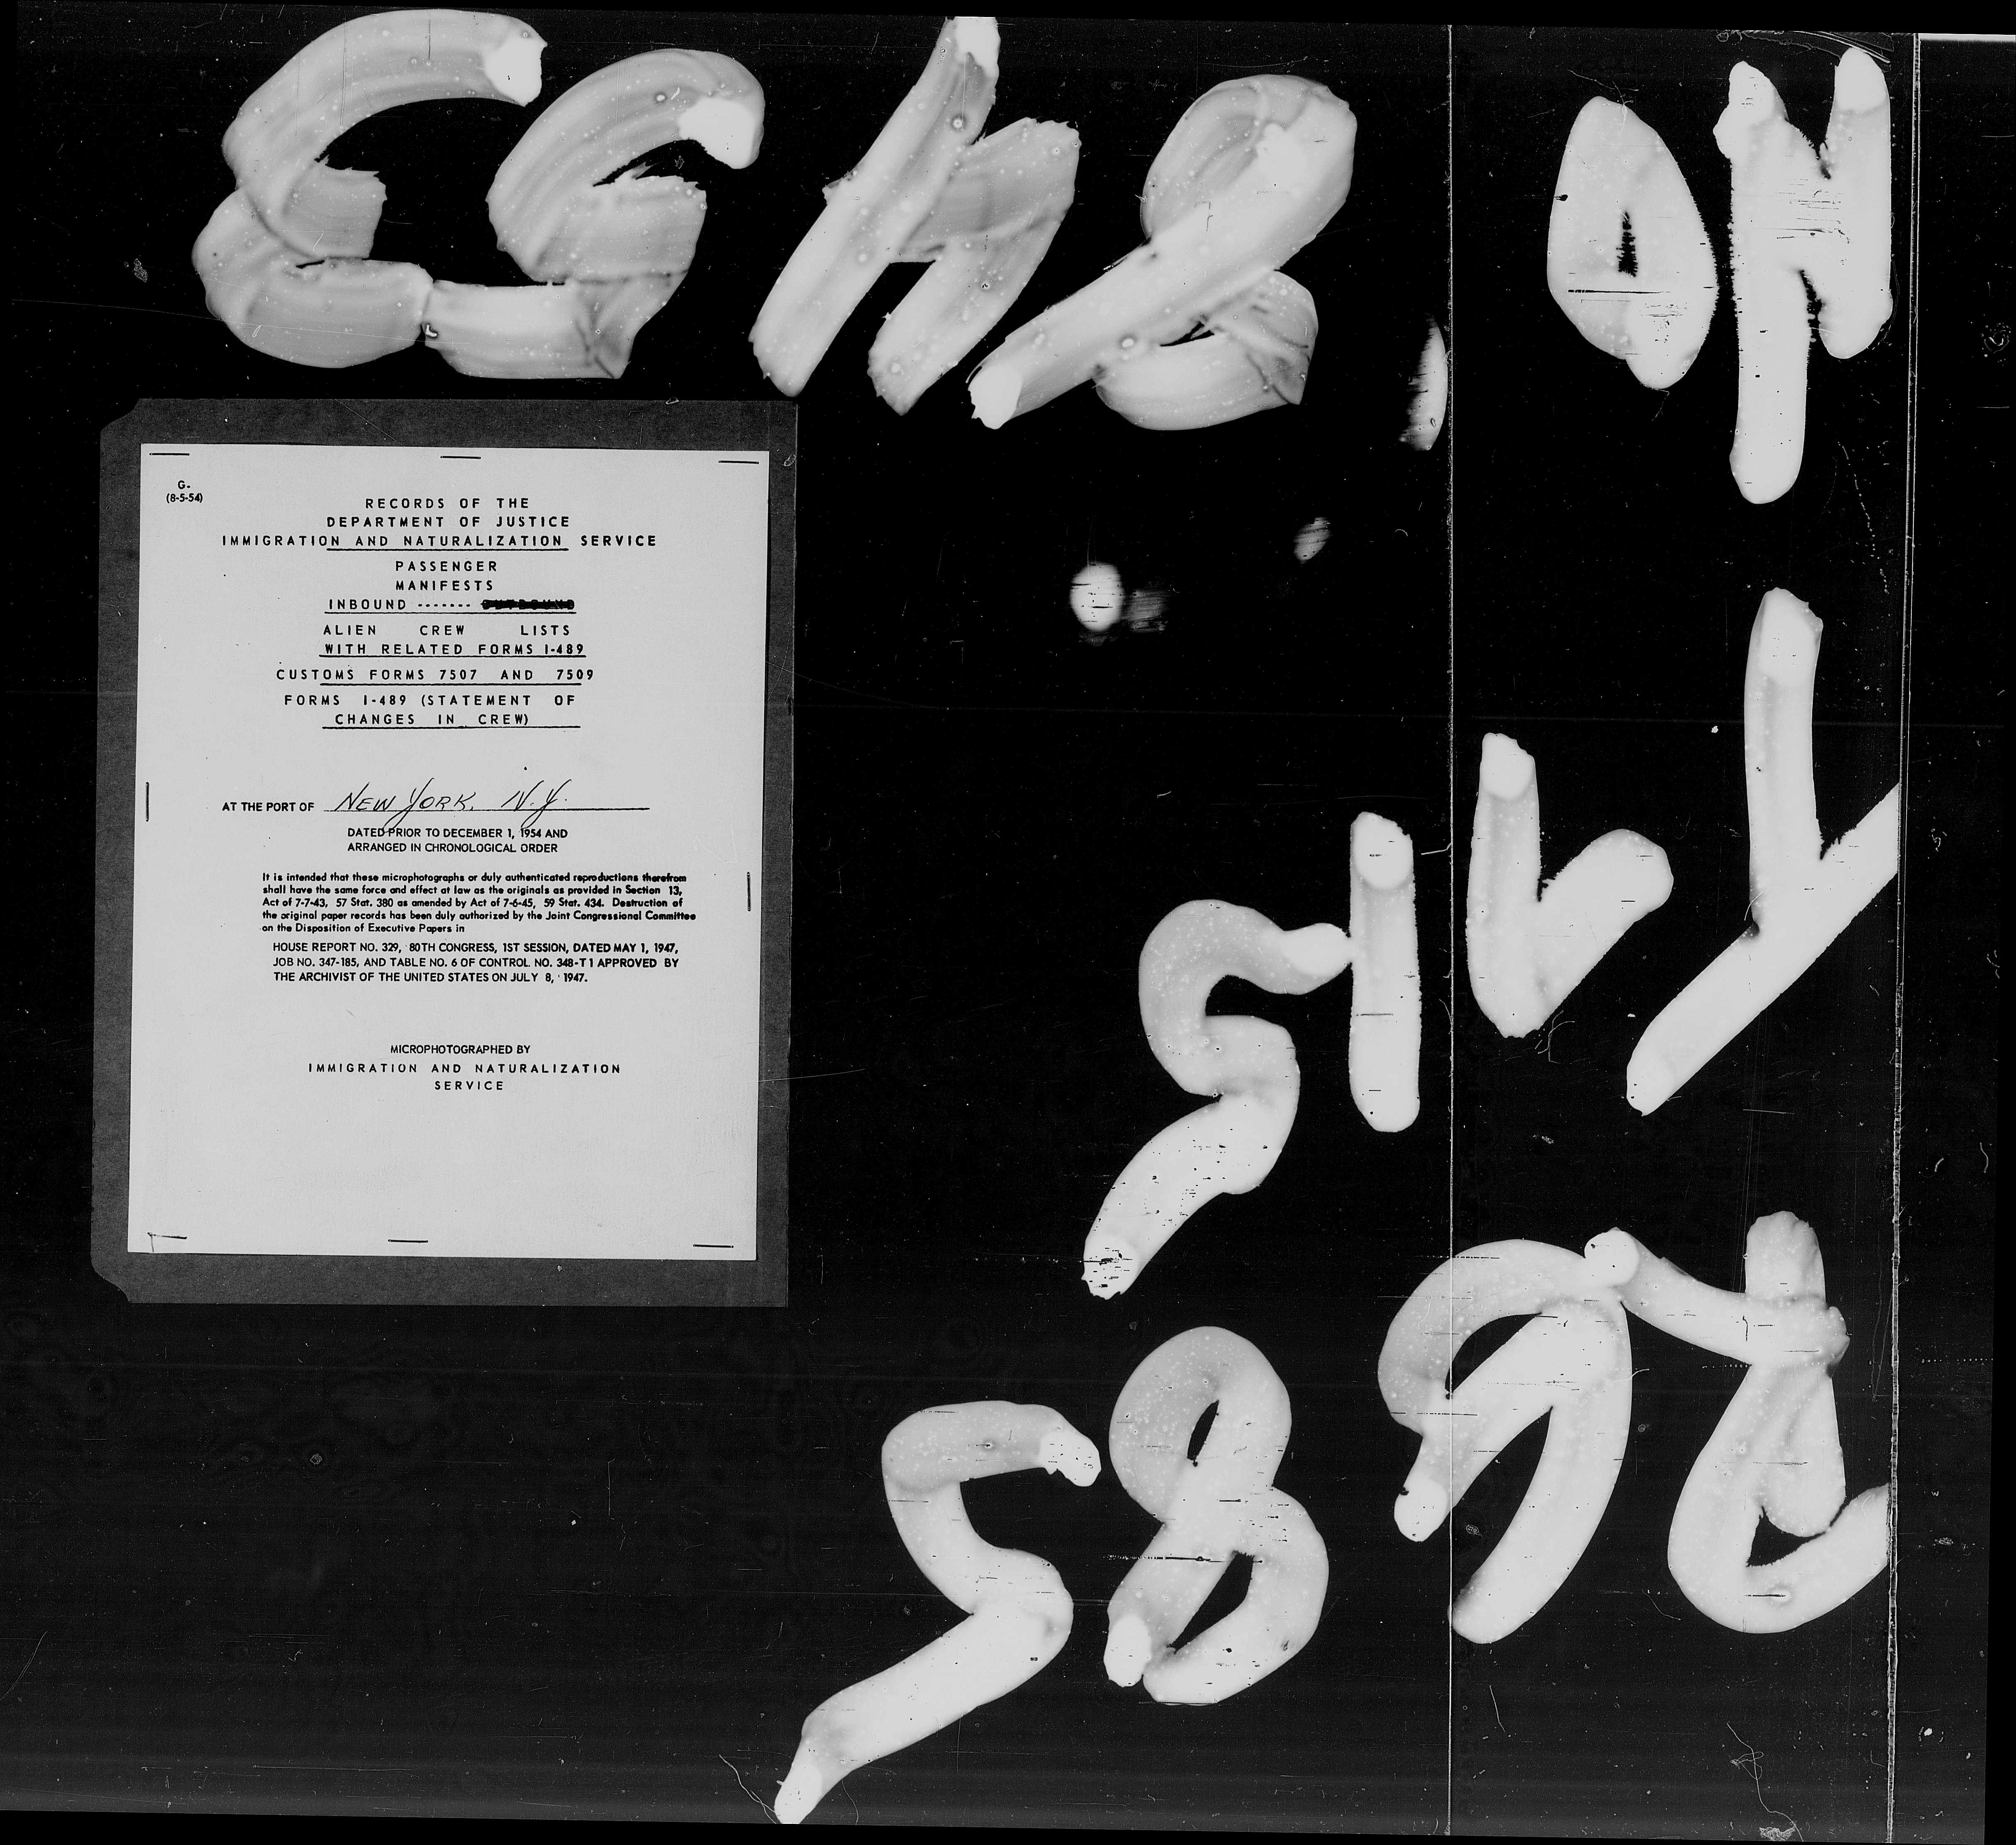 G-
(8-5-54)
RECORDS OF THE
DEPARTMENT OF JUSTICE
IMMIGRATION AND NATURALIZATION SERVICE
PASSENGER
MANIFESTS
INBOUND -------
ALIEN CREW LISTS
WITH RELATED FORMS I-489
CUSTOMS FORMS 7507 AND 7509
FORMS I-489 (STATEMENT OF
CHANGES IN CREW)
AT THE PORT OF NEW YORK, N.Y.
DATED PRIOR TO DECEMBER 1, 1954 AND
ARRANGED IN CHRONOLOGICAL ORDER
It is intended that these microphotographs or duly authenticated reproductions therefrom
shall have the same force and effect at law as the originals as provided in Section 13,
Act of 7-7-43, 57 Stat. 380 as amended by Act of 7-6-45, 59 Stat. 434. Destruction of
the original paper records has been duly authorized by the Joint Congressional Committee
on the Disposition of Executive Papers in
HOUSE REPORT NO. 329, 80TH CONGRESS, 1ST SESSION, DATED MAY 1, 1947,
JOB NO. 347-185, AND TABLE NO. 6 OF CONTROL NO. 348-T1 APPROVED BY
THE ARCHIVIST OF THE UNITED STATES ON JULY 8, 1947.
MICROPHOTOGRAPHED BY
IMMIGRATION AND NATURALIZATION
SERVICE